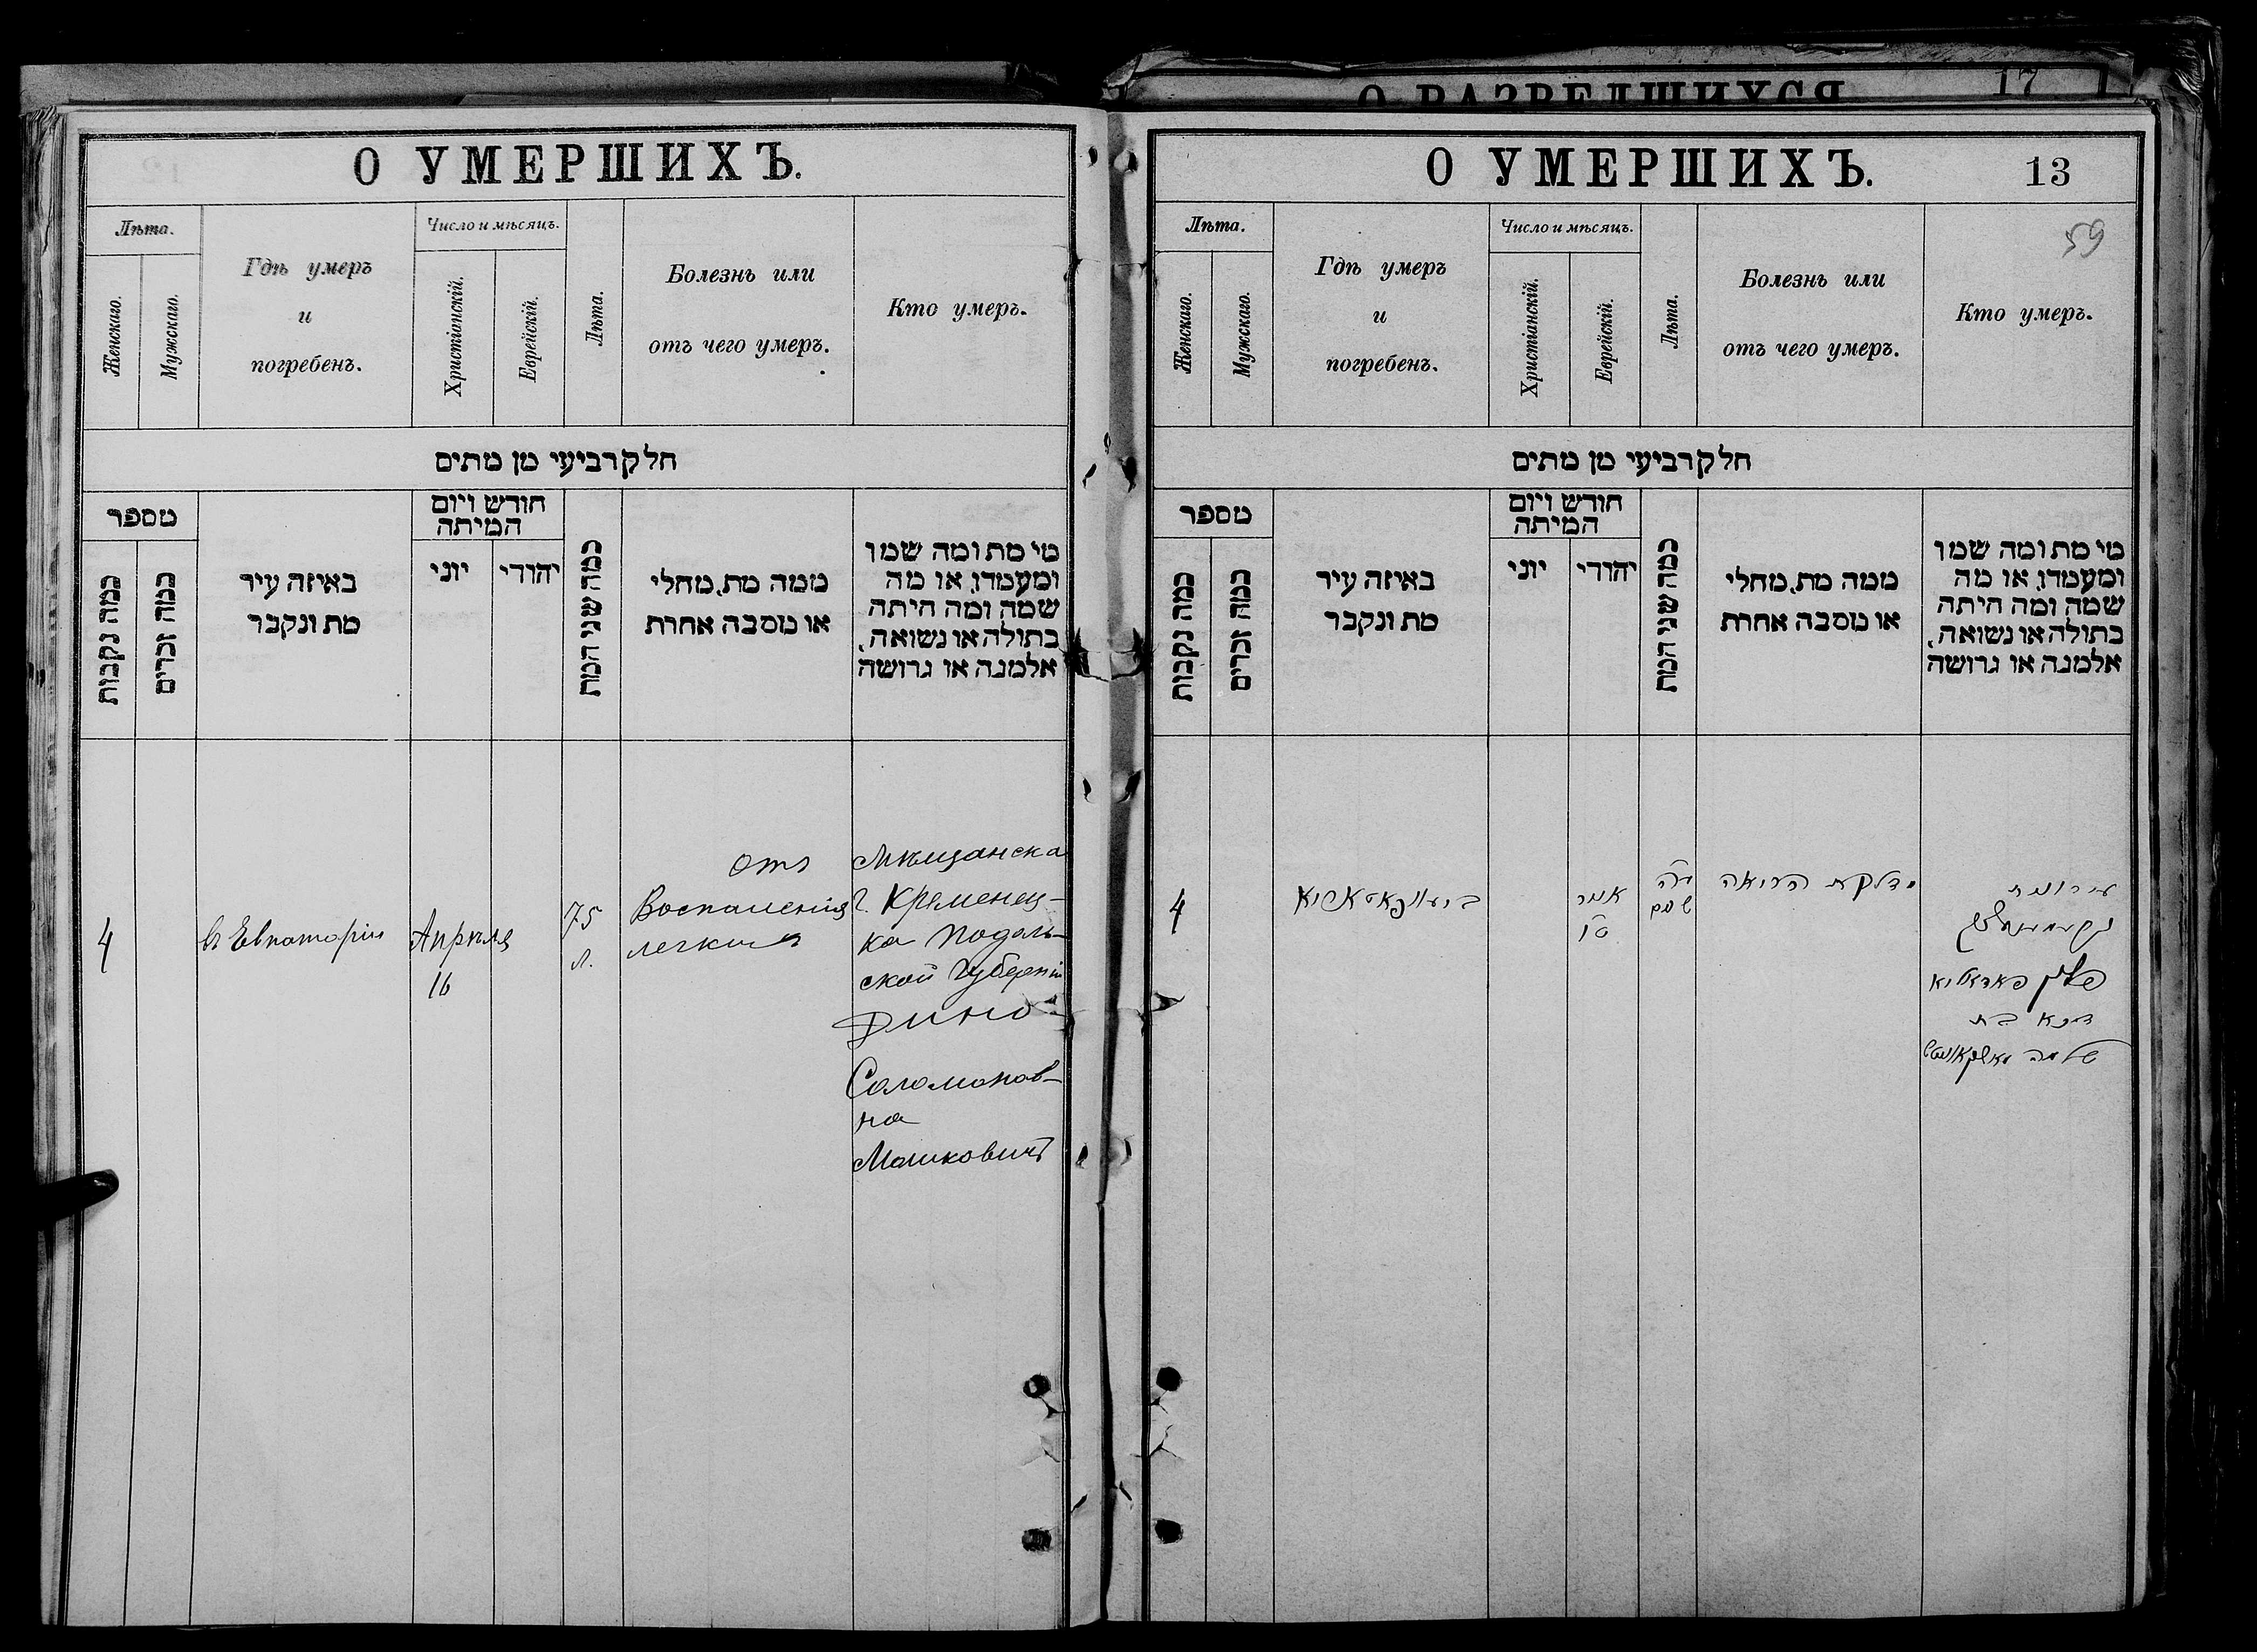 О РАЗВЕДШИХСЯ
17
О УМЕРШИХЪ.
Лѣта.
Женскаго.
Мужскаго.
Гдѣ умеръ
и
погребенъ.
Число и мѣсяцъ.
Христіанскій.
Еврейскій.
Лѣта.
Болезнь или
отъ чего умеръ.
Кто умеръ.
חלק רביעי מן מתים
מספר
כמה נקבות
כמה זכרים
באיזה עיר
מת ונקבר
חודש ויום
המיתה
יוני
יהודי
כמה שני המת
ממה מת, מחלי
או מסבה אחרת
מי מת ומה שמו
ומעמדו, או מה
שמה ומה היתה
בתולה או נשואה,
אלמנה או גרושה
4
въ Евпаторіи
Апрѣля
16
75
л.
отъ
Воспаленія
легкихъ
Мѣщанска
г. Кременец-
ка Подоль-
ской Губерніи
Дина
Соломонов-
на
Машковичъ
О УМЕРШИХЪ.
13
59
Лѣта.
Женскаго.
Мужскаго.
Гдѣ умеръ
и
погребенъ.
Число и мѣсяцъ.
Христіанскій.
Еврейскій.
Лѣта.
Болезнь или
отъ чего умеръ.
Кто умеръ.
חלק רביעי מן מתים
מספר
כמה נקבות
כמה זכרים
באיזה עיר
מת ונקבר
חודש ויום
המיתה
יוני
יהודי
כמה שני המת
ממה מת, מחלי
או מסבה אחרת
מי מת ומה שמו
ומעמדו, או מה
שמה ומה היתה
בתולה או נשואה,
אלמנה או גרושה
4
ביעוופאטאריא
אייר
עה
שנים
מדלקת הריאה
עירונית
פלך פאדאליא
דינא בת
שלמה מאשקאוויטש